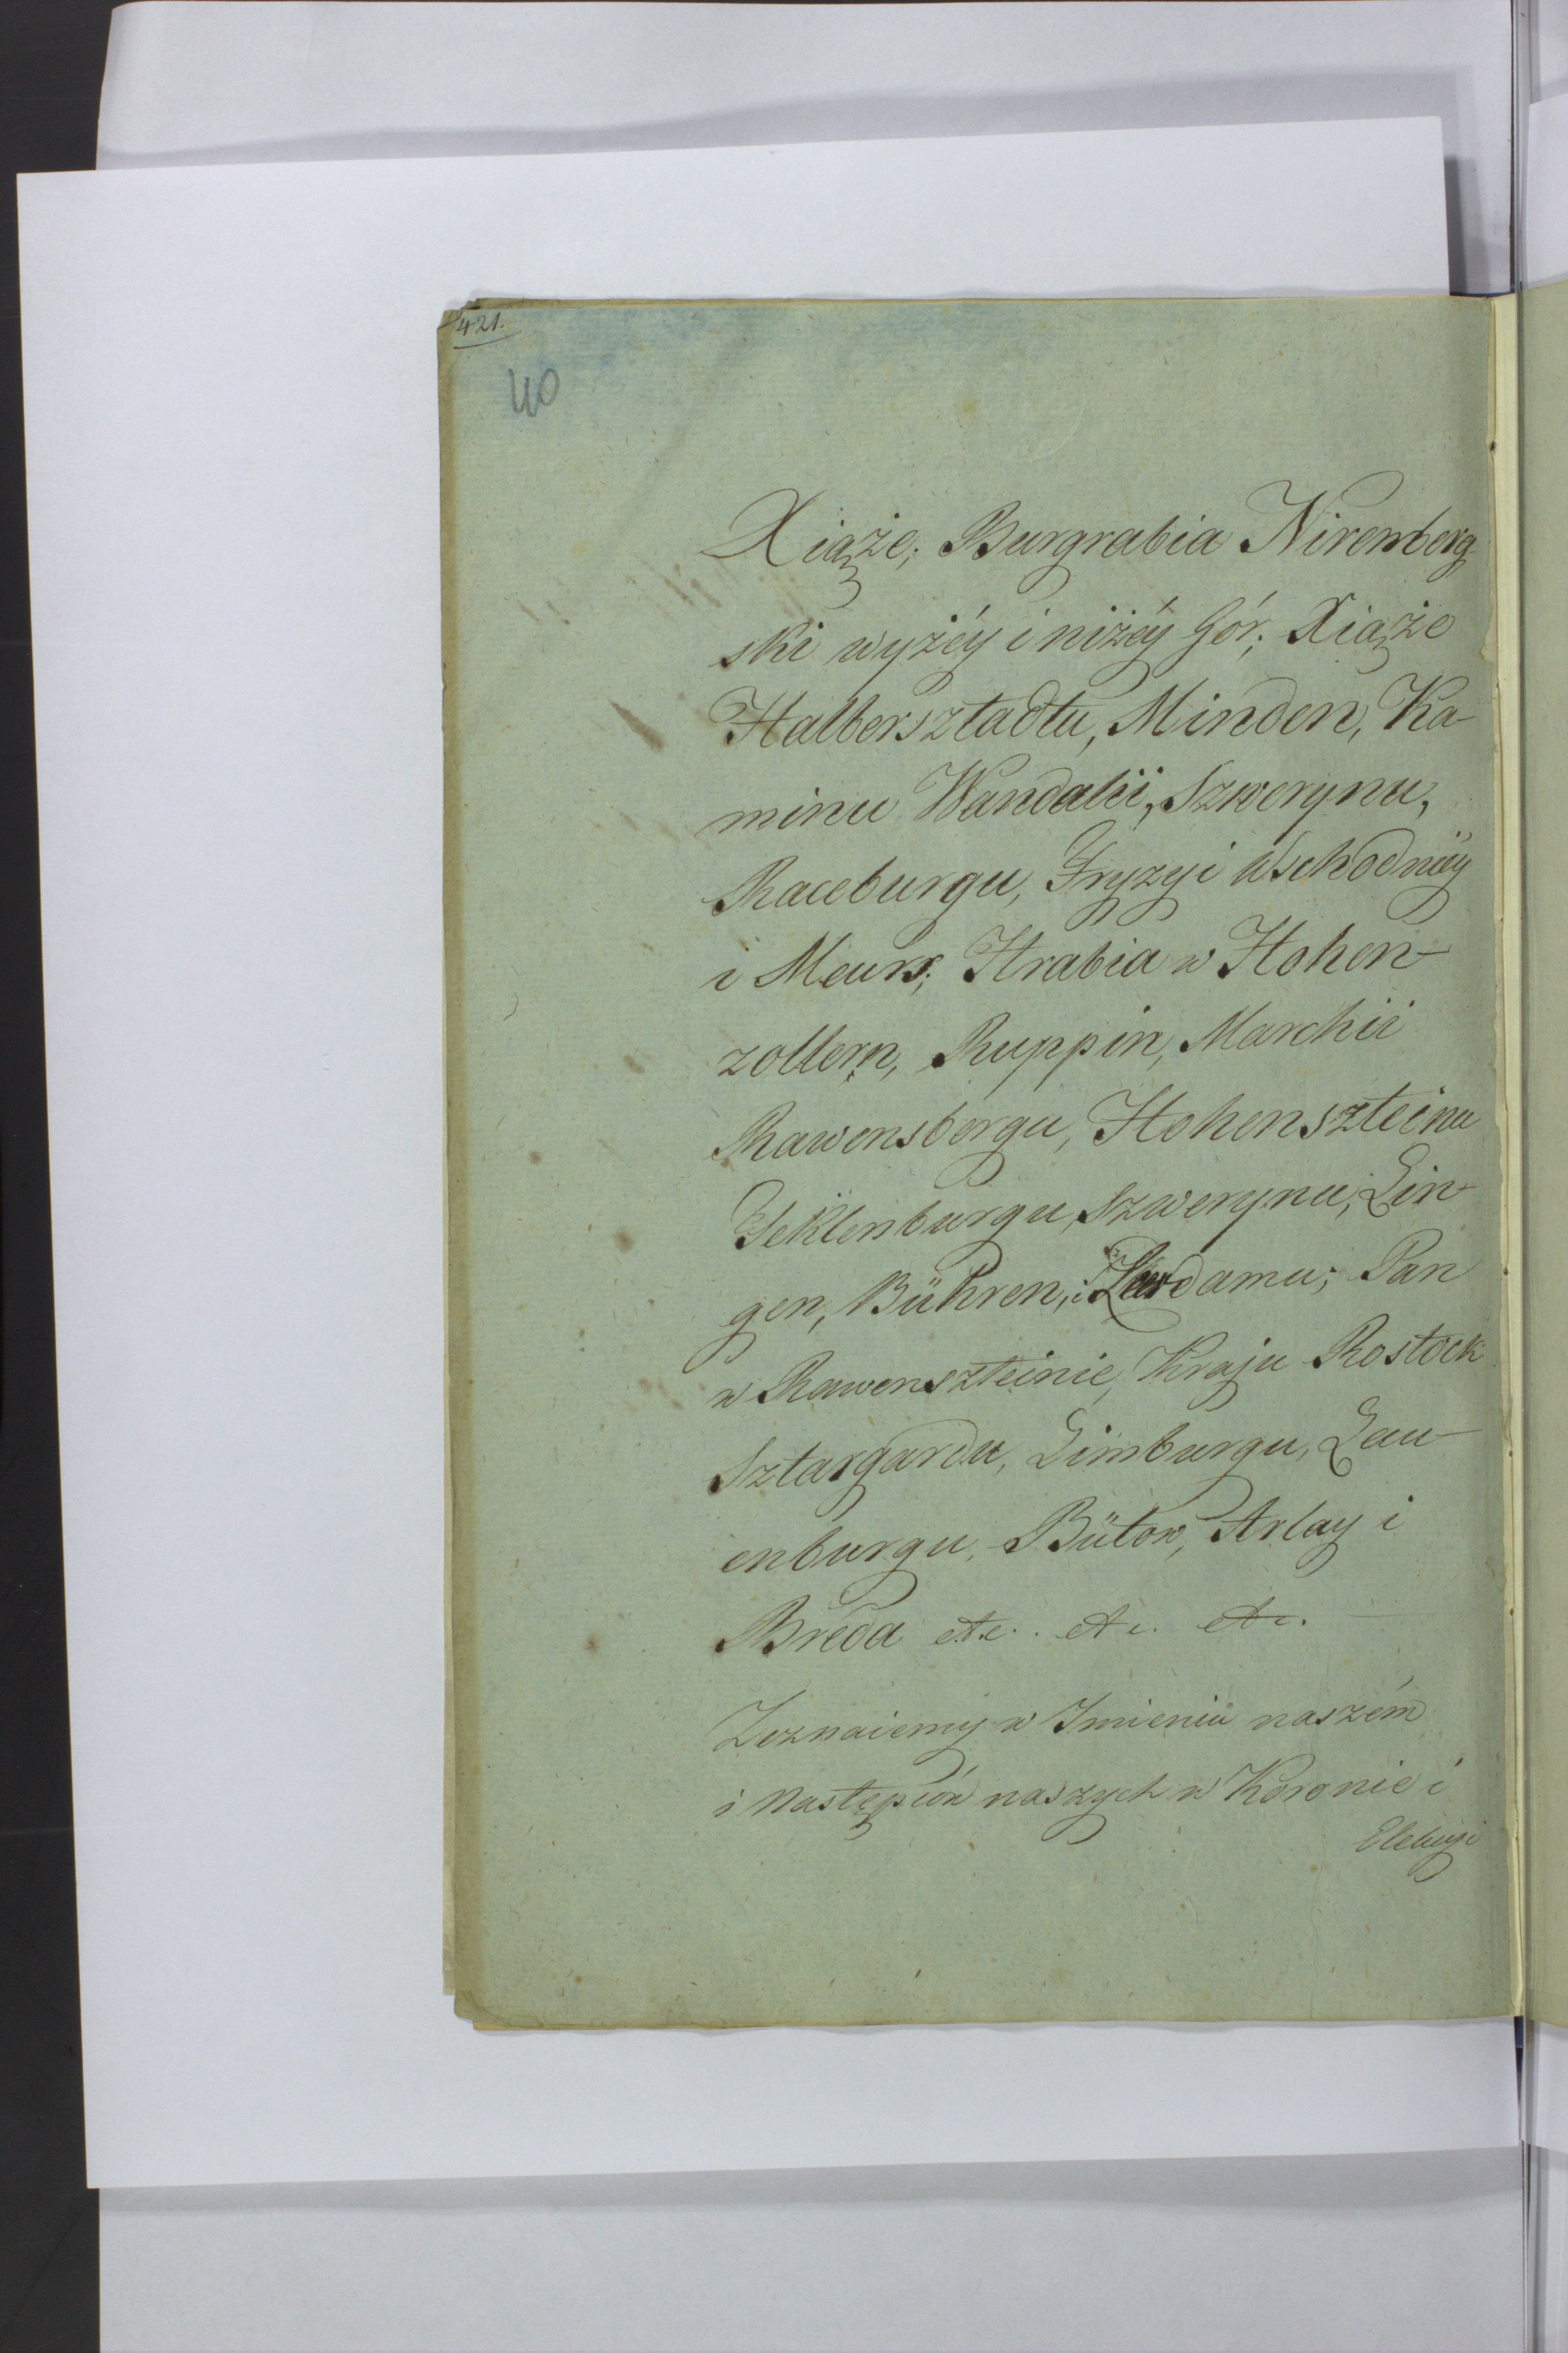 421.
40
Xiąże; Burgrabia Niremberg
ski wyżéy i niżéy Gór; Xiąże
Halbersztadtu, Minden, Ka-
minu Wandalii, Szwerynu,
Raceburgu, Fryzyi Wschodniéy
i Meurs; Hrabia w Hohen-
zollern, Ruppin, Marchii
Rawensbergu, Hohenszteinu
Teklenburgu, Szwerynu, Lin-
gen, Bühren, i Leerdamu; Pan
w Rawenszteinie, Kraju Rostock
Sztargardu, Limburgu, Lau-
enburgu, Bütow, Arlay i
Breda etc. etc. etc.
Zeznaiemy w Imieniu naszém
i Następców naszych w Koronie i